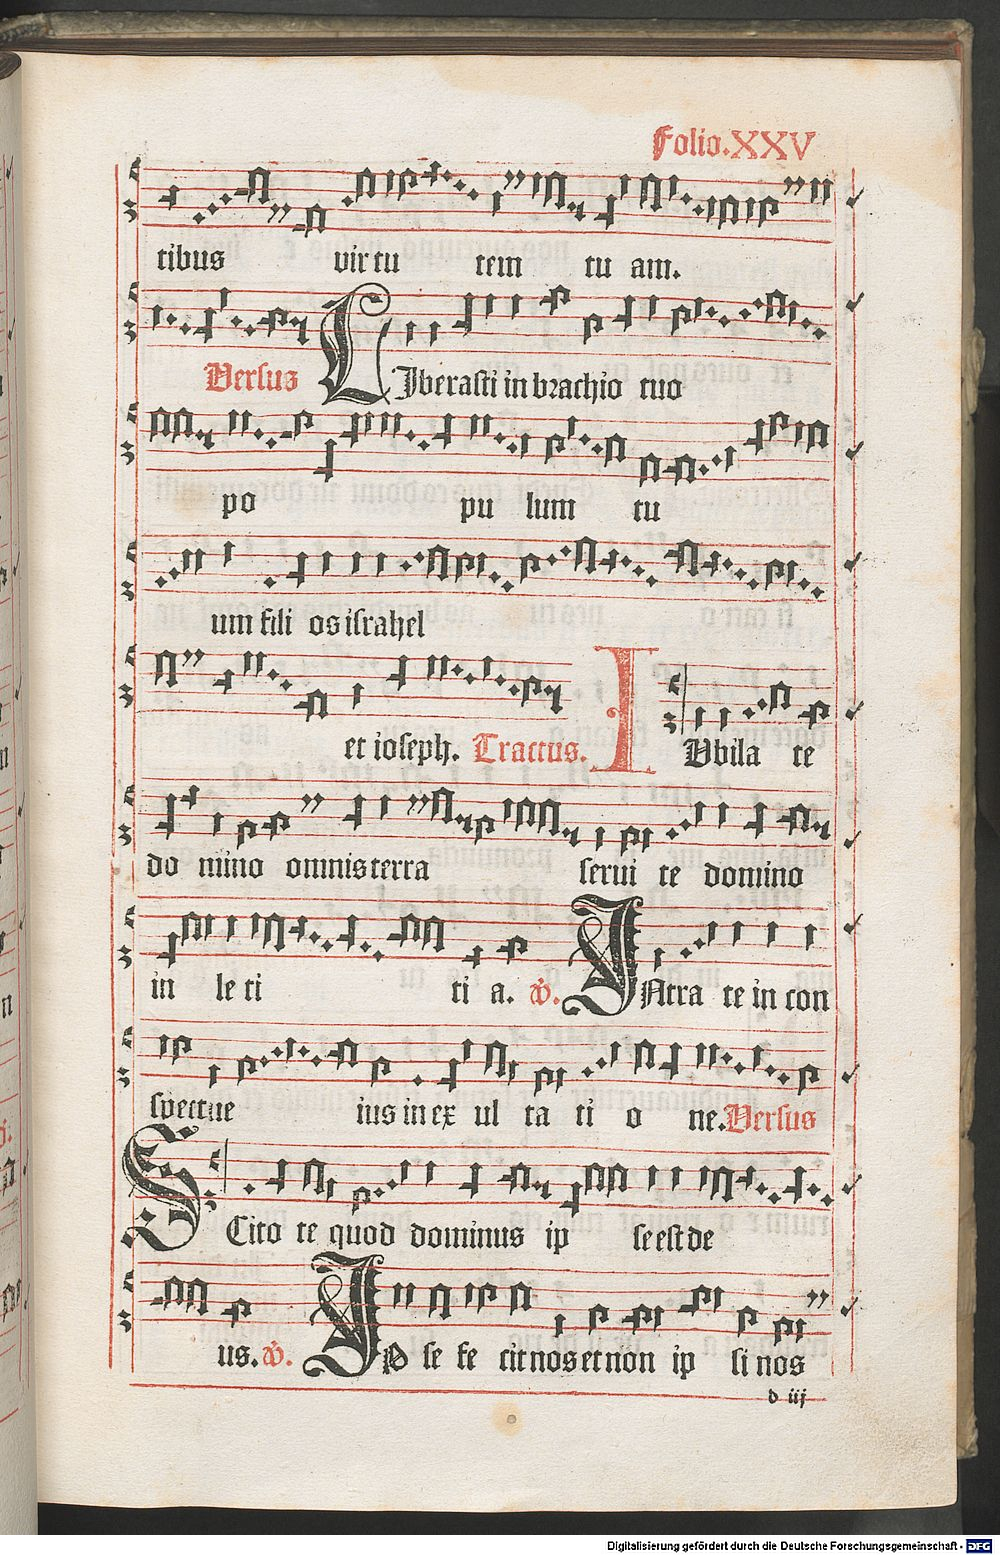 Folio.XXV
tibus virtu tem tu am.
Versus LJberasti in brachio tuo
po pu lum tu
um fili os israhel
et ioseph. Tractus. IVbila te
do mino omnis terra servi te domino
in le ti ti a. V. INtra te in con
spectue ius in ex ul ta ti o ne. Versus
SCito te quod dominus ip se est de
us. V. IPse fe cit nos et non ip si nos
d iij
Digitalisierung gefördert durch die Deutsche Forschungsgemeinschaft - DFG